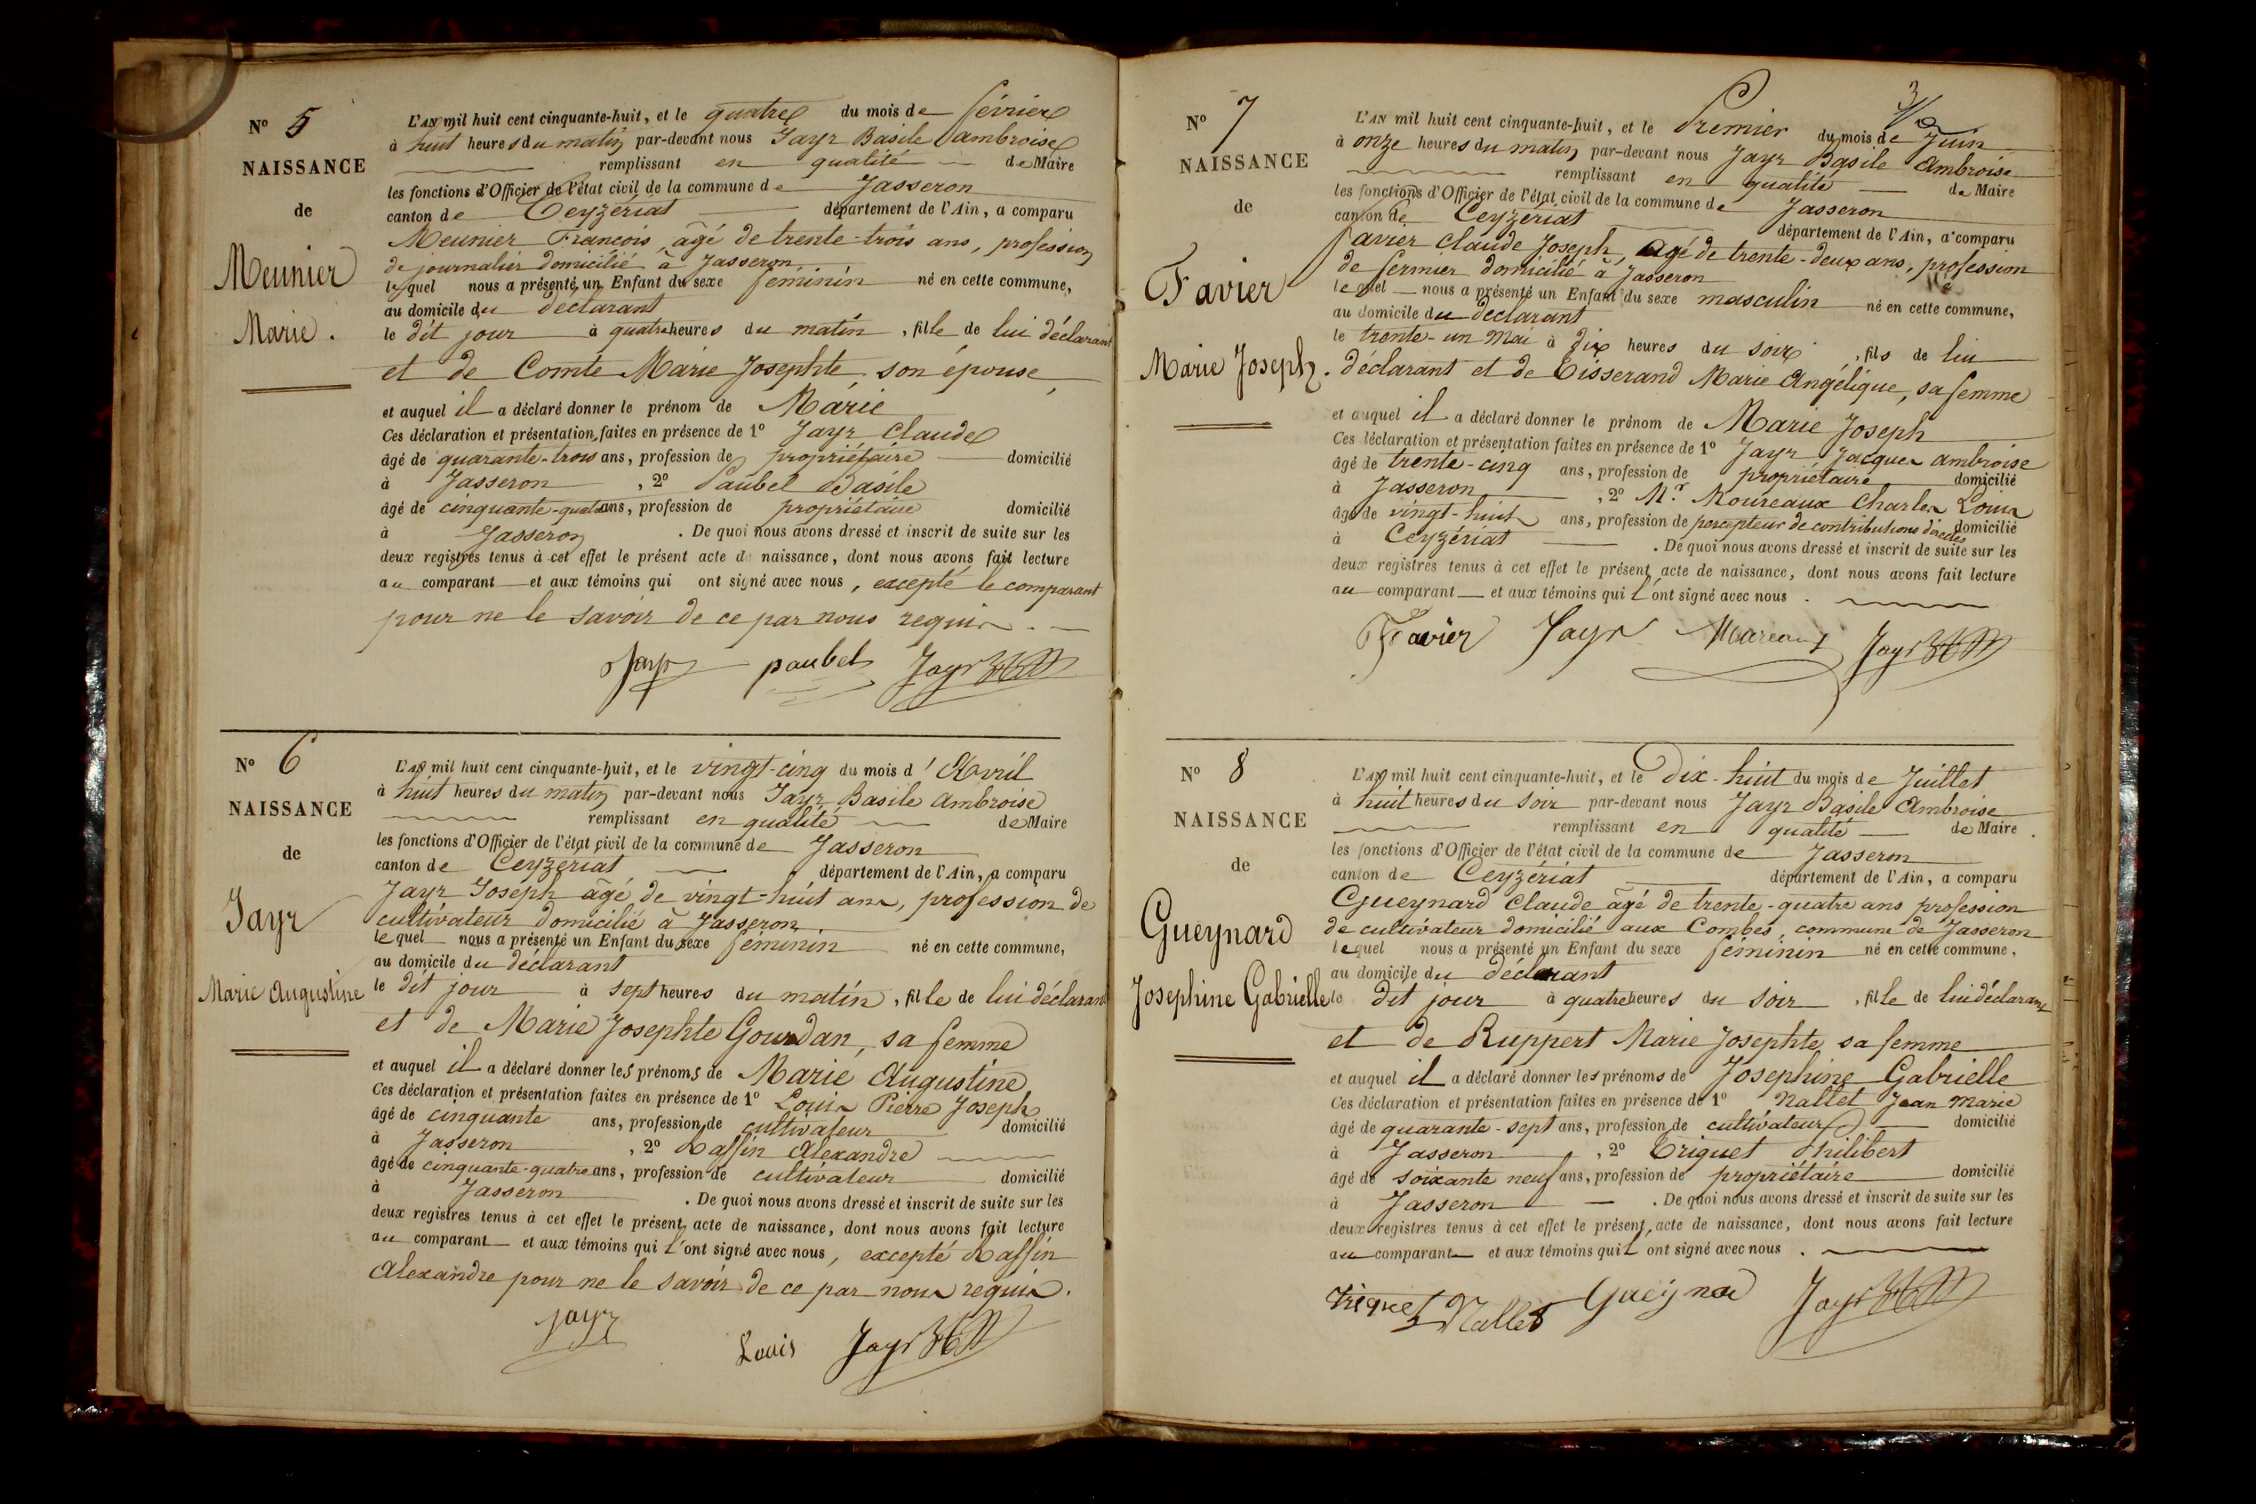 Nº 5
NAISSANCE
de
Meunier
Marie.
L'AN mil huit cent cinquante-huit, et le quatre du mois de février
à huit heures du matin par-devant nous Jayr Basile Ambroise
remplissant en qualité de Maire
les fonctions d'Officier de l'état civil de la commune de Jasseron
canton de Ceyzériat département de l'Ain, a comparu
Meunier François, âgé de trente-trois ans, profession
de journalier domicilié à Jasseron
lequel nous a présenté un Enfant du sexe féminin né en cette commune,
au domicile du déclarant
le dit jour à quatre heures du matin, fille de lui déclarant
et de Comte Marie Josephte son épouse,
et auquel il a déclaré donner le prénom de Marie
Ces déclaration et présentation faites en présence de 1º Jayr Claude
âgé de quarante-trois ans, profession de propriétaire domicilié
à Jasseron, 2º Paubel Basile
âgé de cinquante-quatre ans, profession de propriétaire domicilié
à Jasseron. De quoi nous avons dressé et inscrit de suite sur les
deux registres tenus à cet effet le présent acte de naissance, dont nous avons fait lecture
au comparant et aux témoins qui ont signé avec nous, excepté le comparant
pour ne le savoir de ce par nous requis.
Jayr paubel Jayr
Nº 6
NAISSANCE
de
Jayr
Marie Augustine
L'AN mil huit cent cinquante-huit, et le vingt-cinq du mois d'Avril
à huit heures du matin par-devant nous Jayr Basile Ambroise
remplissant en qualité de Maire
les fonctions d'Officier de l'état civil de la commune de Jasseron
canton de Ceyzériat département de l'Ain, a comparu
Jayr Joseph âgé de vingt-huit ans, profession de
cultivateur domicilié à Jasseron
lequel nous a présenté un Enfant du sexe féminin né en cette commune,
au domicile du déclarant
le dit jour à sept heures du matin, fille de lui déclarant
et de Marie Josephte Gourdan, sa femme
et auquel il a déclaré donner les prénoms de Marie Augustine
Ces déclaration et présentation faites en présence de 1º Louis Pierre Joseph
âgé de cinquante ans, profession de cultivateur domicilié
à Jasseron, 2º Raffin Alexandre
âgé de cinquante-quatre ans, profession de cultivateur domicilié
à Jasseron. De quoi nous avons dressé et inscrit de suite sur les
deux registres tenus à cet effet le présent acte de naissance, dont nous avons fait lecture
au comparant et aux témoins qui l'ont signé avec nous, excepté Raffin
Alexandre pour ne le savoir de ce par nous requis.
jayr
Louis Jayr
Nº 7
NAISSANCE
de
Favier
Marie Joseph.
L'AN mil huit cent cinquante-huit, et le Premier du mois de Juin
à onze heures du matin par-devant nous Jayr Basile Ambroise
remplissant en qualité de Maire
les fonctions d'Officier de l'état civil de la commune de Jasseron
canton de Ceyzériat département de l'Ain, a comparu
Favier Claude Joseph, âgé de trente-deux ans, profession
de fermier domicilié à Jasseron
lequel nous a présenté un Enfant du sexe masculin né en cette commune,
au domicile du déclarant
le trente-un Mai à dix heures du soir, fils de lui
déclarant et de Tisserand Marie Angélique, sa femme
et auquel il a déclaré donner le prénom de Marie Joseph
Ces déclaration et présentation faites en présence de 1º Jayr Jacques Ambroise
âgé de trente-cinq ans, profession de propriétaire domicilié
à Jasseron, 2º Mr. Moureaux Charles Louis
âgé de vingt-huit ans, profession de percepteur de contributions directes domicilié
à Ceyzériat. De quoi nous avons dressé et inscrit de suite sur les
deux registres tenus à cet effet le présent acte de naissance, dont nous avons fait lecture
au comparant et aux témoins qui l'ont signé avec nous.
Favier Jayr Moreaux Jayr
Nº 8
NAISSANCE
de
Gueynard
Josephine Gabrielle
L'AN mil huit cent cinquante-huit, et le Dix-huit du mois de Juillet
à huit heures du soir par-devant nous Jayr Basile Ambroise
remplissant en qualité de Maire.
les fonctions d'Officier de l'état civil de la commune de Jasseron
canton de Ceyzériat département de l'Ain, a comparu
Gueynard Claude âgé de trente-quatre ans profession
de cultivateur domicilié aux Combes, commune de Jasseron
lequel nous a présenté un Enfant du sexe féminin né en cette commune,
au domicile du déclarant
le dit jour à quatre heures du soir, fille de lui déclarant
et de Ruppert Marie Josephte sa femme
et auquel il a déclaré donner les prénoms de Josephine Gabrielle
Ces déclaration et présentation faites en présence de 1º Nallet Jean Marie
âgé de quarante-sept ans, profession de cultivateur domicilié
à Jasseron, 2º Triquet Philibert
âgé de soixante neuf ans, profession de propriétaire domicilié
à Jasseron. De quoi nous avons dressé et inscrit de suite sur les
deux registres tenus à cet effet le présent acte de naissance, dont nous avons fait lecture
au comparant et aux témoins qui l'ont signé avec nous.
triquet Nallet Gueynar Jayr